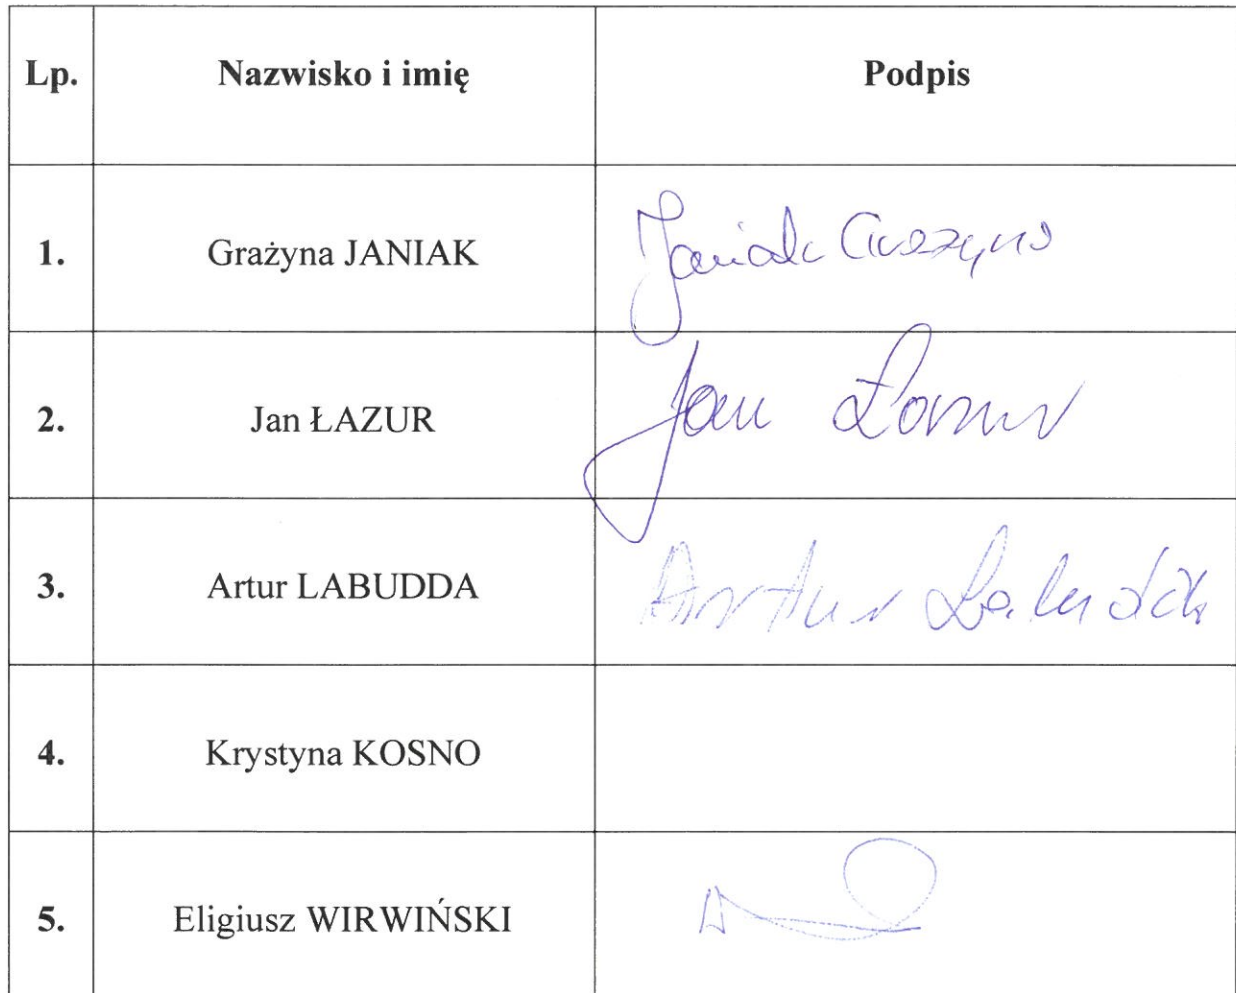 Lp. Nazwisko i imię Podpis
1. Grażyna JANIAK Janiak Grażyna
2. Jan ŁAZUR Jan Łazur
3. Artur LABUDDA Artur Labudda
4. Krystyna KOSNO
5. Eligiusz WIRWIŃSKI